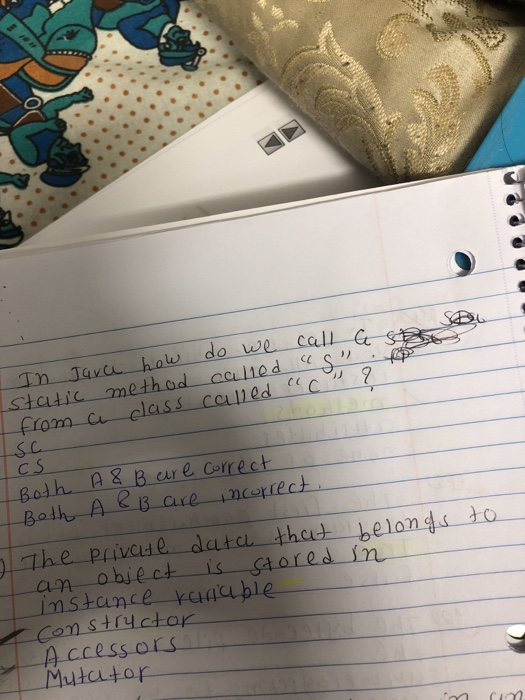 In Java how do we call a
static method called "S"
from a class called "C" ?
SC
CS
Both A & B are correct
Both A & B are incorrect.
The private data that belongs to
an object is stored in
instance variable
Constructor
Accessors
Mutator